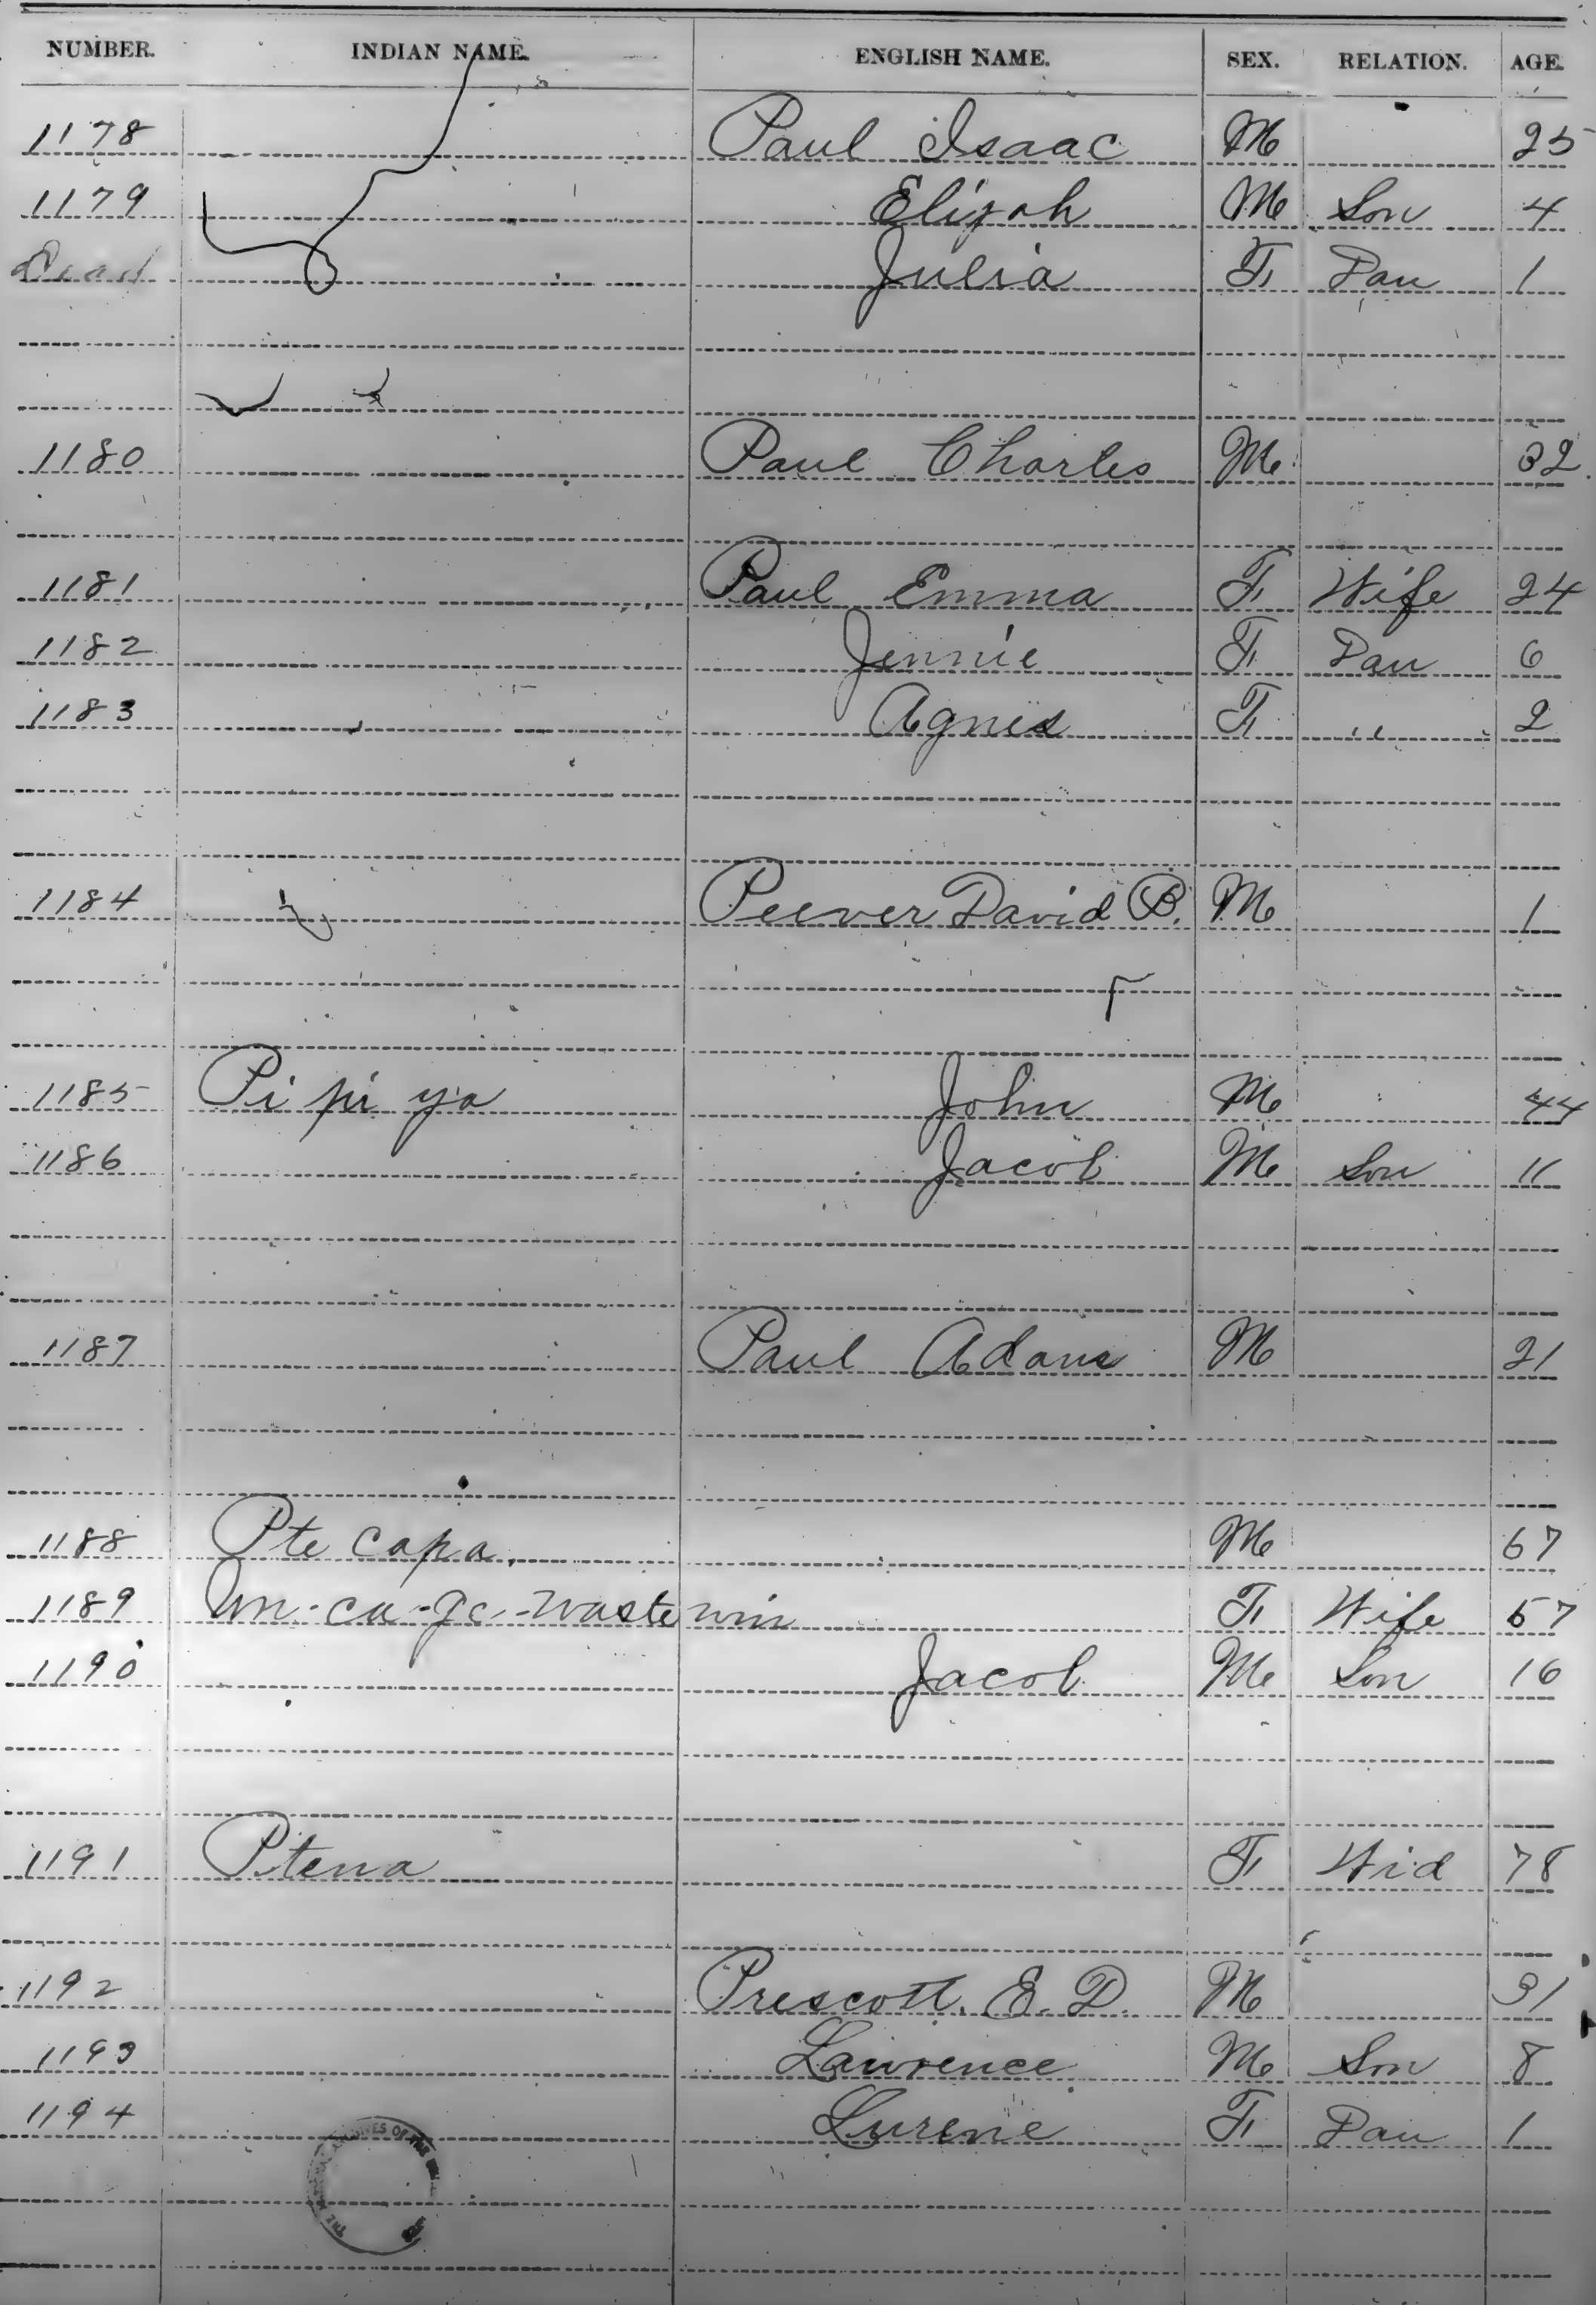 NUMBER. INDIAN NAME. ENGLISH NAME. SEX. RELATION. AGE.
1178 Paul Isaac M 25
1179 Elijah M Son 4
Dead Julia F Dau 1
1180 Paul Charles M 32
1181 Paul Emma F Wife 24
1182 Jennie F Dau 6
1183 Agnes F " 2
1184 Peever David B. M 1
1185 Pi pi ya John M 44
1186 Jacob M Son 11
1187 Paul Adams M 21
1188 Pte capa. M 67
1189 waste win F Wife 57
1190 Jacob M Son 16
1191 Ptena F Wid 78
1192 Prescott. E. D. M 31
1193 Lawrence M Son 8
1194 Lurene F Dau 1
ARCHIVES OF THE